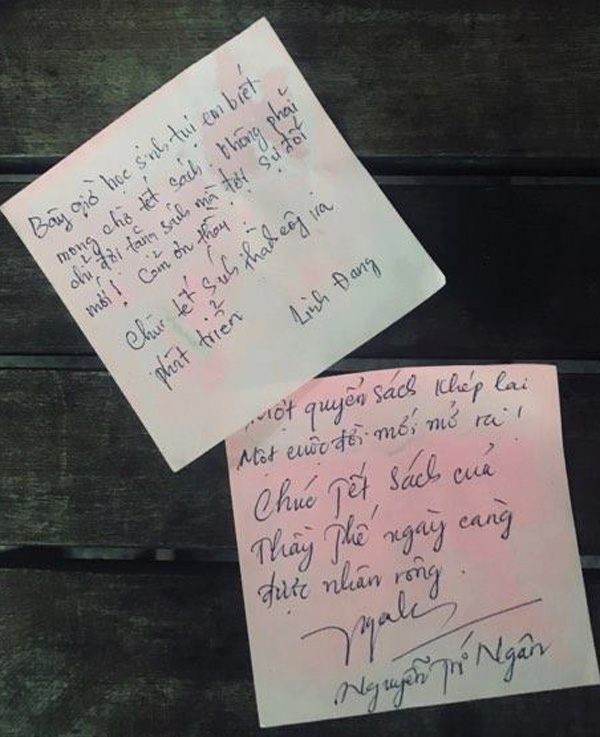 Bây giờ học sinh tụi em biết
mong chờ tết sách. Không phải
chỉ đợi tặng sách mà đợi sự đổi
mới! Cảm ơn thầy!
Chúc tết sách thành công và
phát triển
Linh Đang
Một quyển sách khép lại
Một cuộc đời mới mở ra!
Chúc Tết Sách của
Thầy Thế ngày càng
được nhân rộng.
Nguyễn Trí Ngân